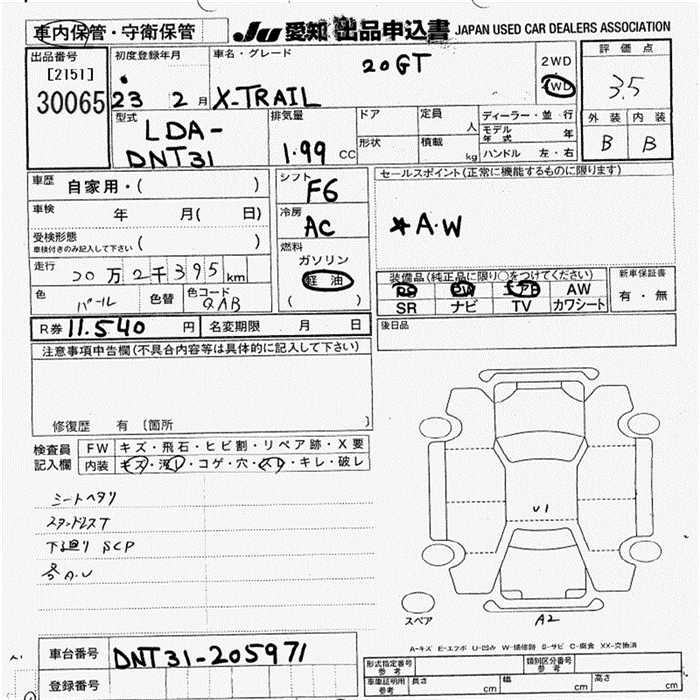 車内保管・守衛保管 Ju 愛知 出品申込書 JAPAN USED CAR DEALERS ASSOCIATION
出品番号 [2151] 30065
初度登録年月 23 2月
車名・グレード 20GT X-TRAIL
2WD 4WD
評価点 3.5
外装 内装
B B
型式 LDA-DNT31
排気量 1.99 CC
ドア 定員 人
形状 積載 kg
ディーラー・並行
モデル年式 年
ハンドル 左・右
車歴 自家用・( )
車検 年 月( 日)
受検形態 ( )
車検付きのみ記入して下さい
走行 20万2千395km
色 パール 色替 色コード QAB
シフト F6
冷房 AC
燃料
ガソリン
軽油
( )
セールスポイント(正常に機能するものに限ります)
*A.W
装備品(純正品に限り○をつけてください)
PS PW エアB AW
SR ナビ TV カワシート
新車保証書
有・無
後日品
R券 11.540 円 名変期限 月 日
注意事項申告欄(不具合内容等は具体的に記入して下さい)
修復歴 有 〔箇所 〕
検査員記入欄
FW キズ・飛石・ヒビ割・リペア跡・X要
内装 キズ・汚レ・コゲ・穴・スレ・キレ・破レ
シートヘタリ
スタッドレスT
下廻り SCP
A.U
U1
スペア
A2
A-キズ E-エクボ U-凹み W-補修跡 S-サビ C-腐食 XX-交換済
車台番号 DNT31-205971
登録番号
形式指定番号 参考 類別区分番号 参考
車庫証明用 参考 長さ cm 幅 cm 高さ cm